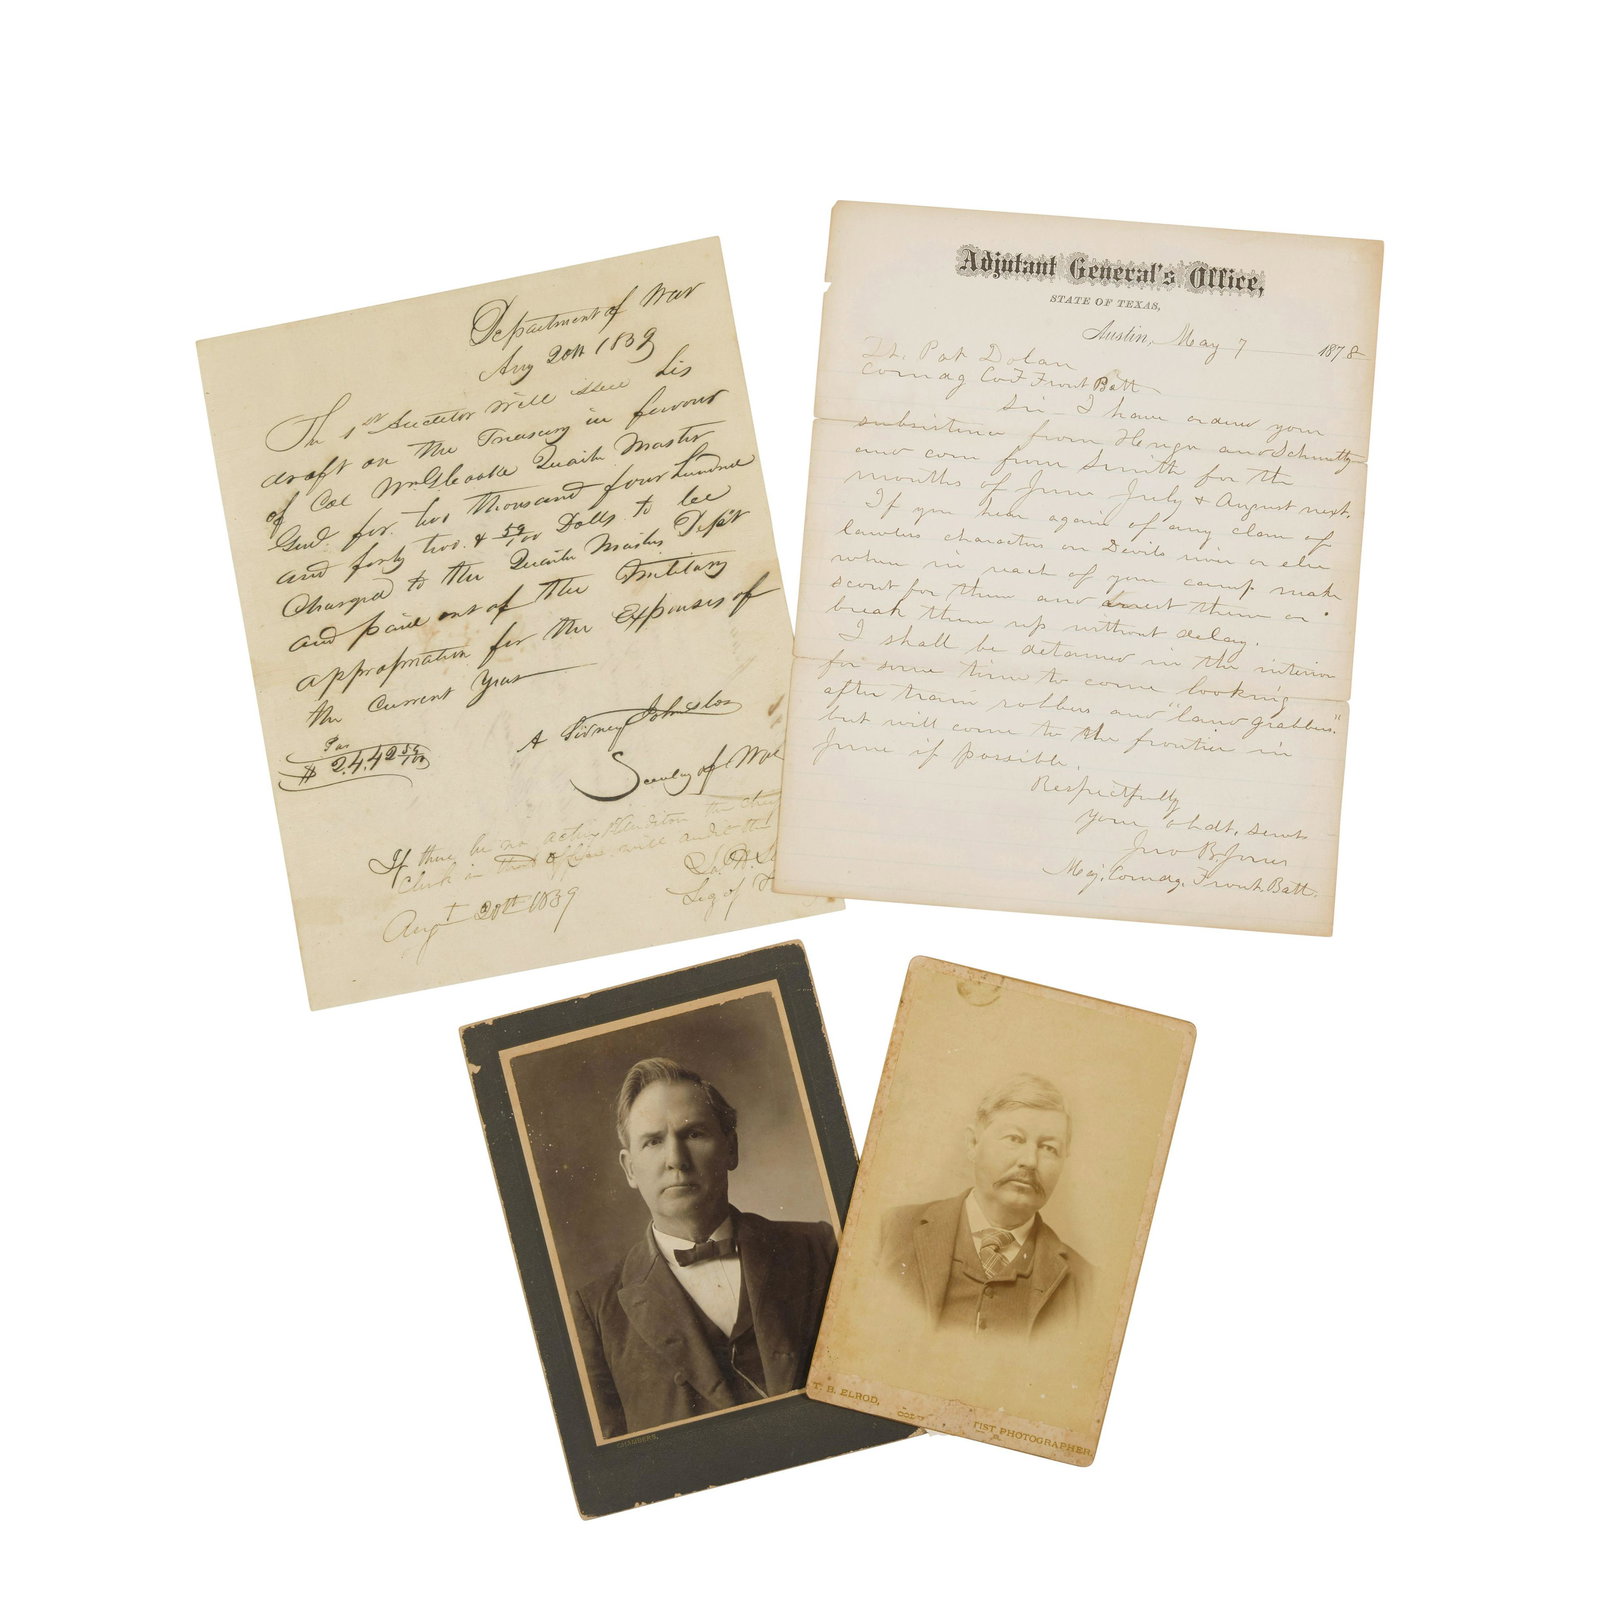 Department of War
Aug 20th 1839
The 1st Auditor will issue his
draft on the Treasury in favour
of Col Wm G Cooke Quarter Master
Genl. for two thousand four hundred
and forty two & 59/100 Dolls to be
Charged to the Quarter Masters Dep't
and paid out of the Military
appropriation for the Expenses of
the Current Year
$ 2.442 59/100
A Sidney Johnston
Secretary of War
If there be no acting Auditor the Chief
Clerk in that office will audit this
Augt 20th 1839
Adjutant General's Office,
STATE OF TEXAS,
Austin, May 7 1878
Lt. Pat Dolan
Comdg Co F Front Batt
Sir - I have orderd your
subsistence from and Schmitty
and corn from Smith for the
months of June July & August next.
If you hear again of any clan of
lawless characters on Devils river or else
where in reach of your camp make
scout for them and arrest them or
break them up without delay.
I shall be detained in the interior
for some time to come looking
after train robbers and "land grabbers"
but will come to the frontier in
June if possible.
Respectfully
your obdt. servt
Jno B Jones
Maj. Comdg. Front. Batt.
CHAMBERS,
T. B. ELROD,
TIST PHOTOGRAPHER,